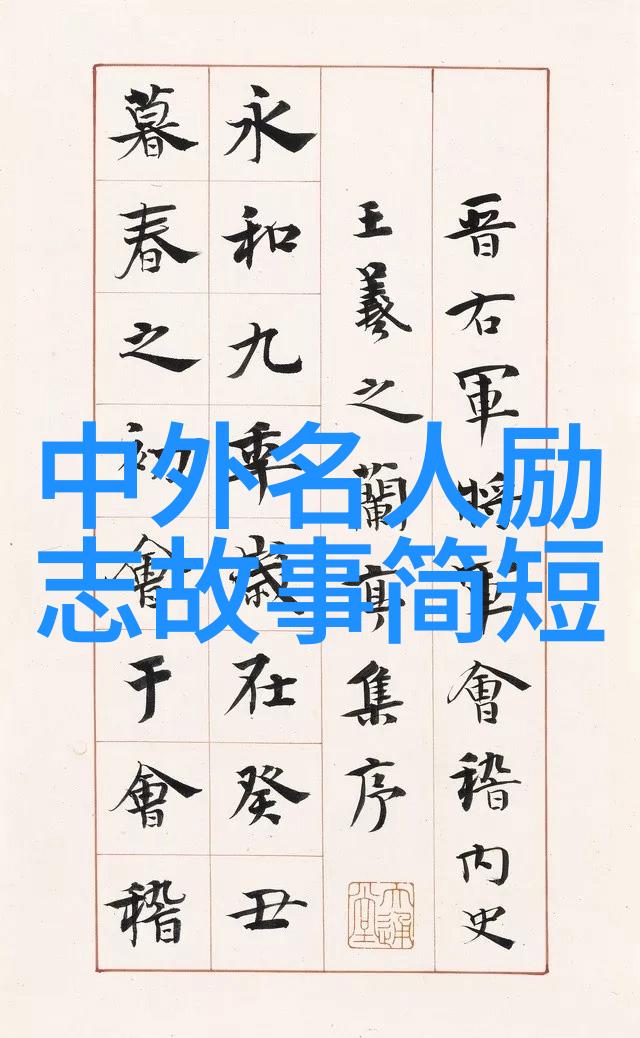 中外名人励
志故事简短
晋右軍将軍會稽内史
王羲之蘭亭集序
永和九年歲在癸丑
暮春之初會于會稽